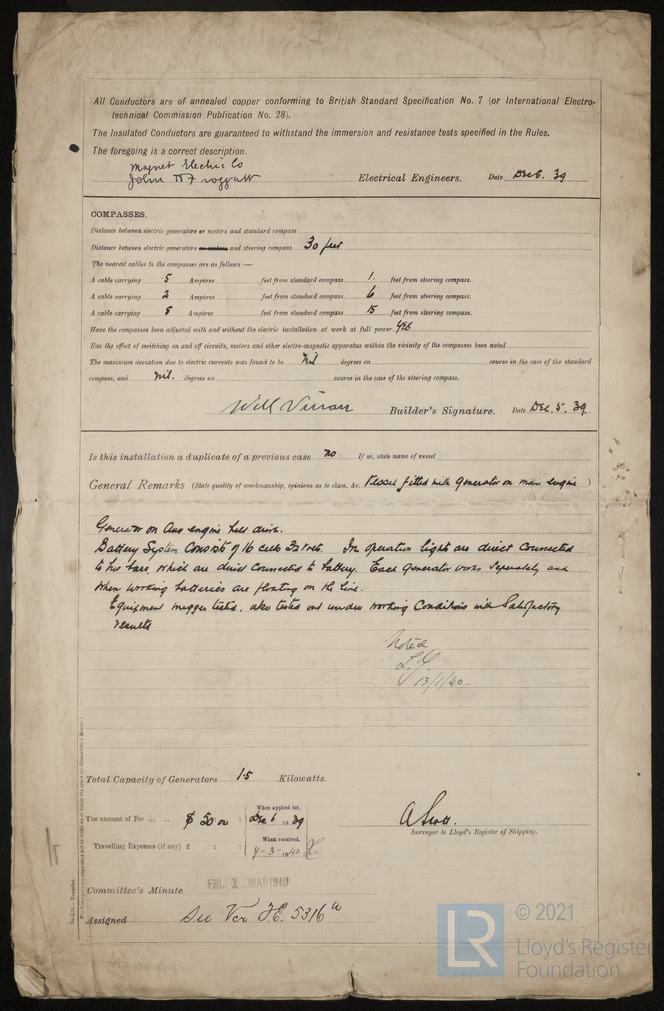 All Conductors are of annealed copper conforming to British Standard Specification No. 7 (or International Electro-
technical Commission Publication No. 28).
The Insulated Conductors are guaranteed to withstand the immersion and resistance tests specified in the Rules.
The foregoing is a correct description.
Magnet Electric Co
John W Froggatt Electrical Engineers. Date Dec 6. 39
COMPASSES.
Distance between electric generators or motors and standard compass
Distance between electric generators or motors and steering compass 30 feet
The nearest cables to the compasses are as follows :—
A cable carrying .5 Ampères feet from standard compass 1. feet from steering compass.
A cable carrying 2 Ampères feet from standard compass 6 feet from steering compass.
A cable carrying 8 Ampères feet from standard compass 15 feet from steering compass.
Have the compasses been adjusted with and without the electric installation at work at full power yes
Has the effect of switching on and off circuits, motors and other electro-magnetic apparatus within the vicinity of the compasses been noted
The maximum deviation due to electric currents was found to be Nil degrees on course in the case of the standard
compass, and nil. degrees on course in the case of the steering compass.
Will Builder's Signature. Date Dec. 5. 39
Is this installation a duplicate of a previous case no If so, state name of vessel
General Remarks (State quality of workmanship, opinions as to class, &c. Vessel fitted with generator on main engine )
Generator on Aux engine belt drive.
Battery System consists of 16 cells 32 volts. In operation lights are direct connected
to bus bars, which are direct connected to battery. Each generator works separately and
when working batteries are floating on the line.
Equipment megger tested, also tested out under working conditions with satisfactory
results
Noted
13/1/40.
Total Capacity of Generators 1.5 Kilowatts.
The amount of Fee ... ... $ 50 00 : When applied for, Dec 6 1939
Travelling Expenses (if any) £ : : When received, 4-3-1940
A Scott.
Surveyor to Lloyd's Register of Shipping.
Committee's Minute FRI. 1 MAR 1940
Assigned See Ver F.E. 5316a
LR © 2021
Lloyd's Register
Foundation